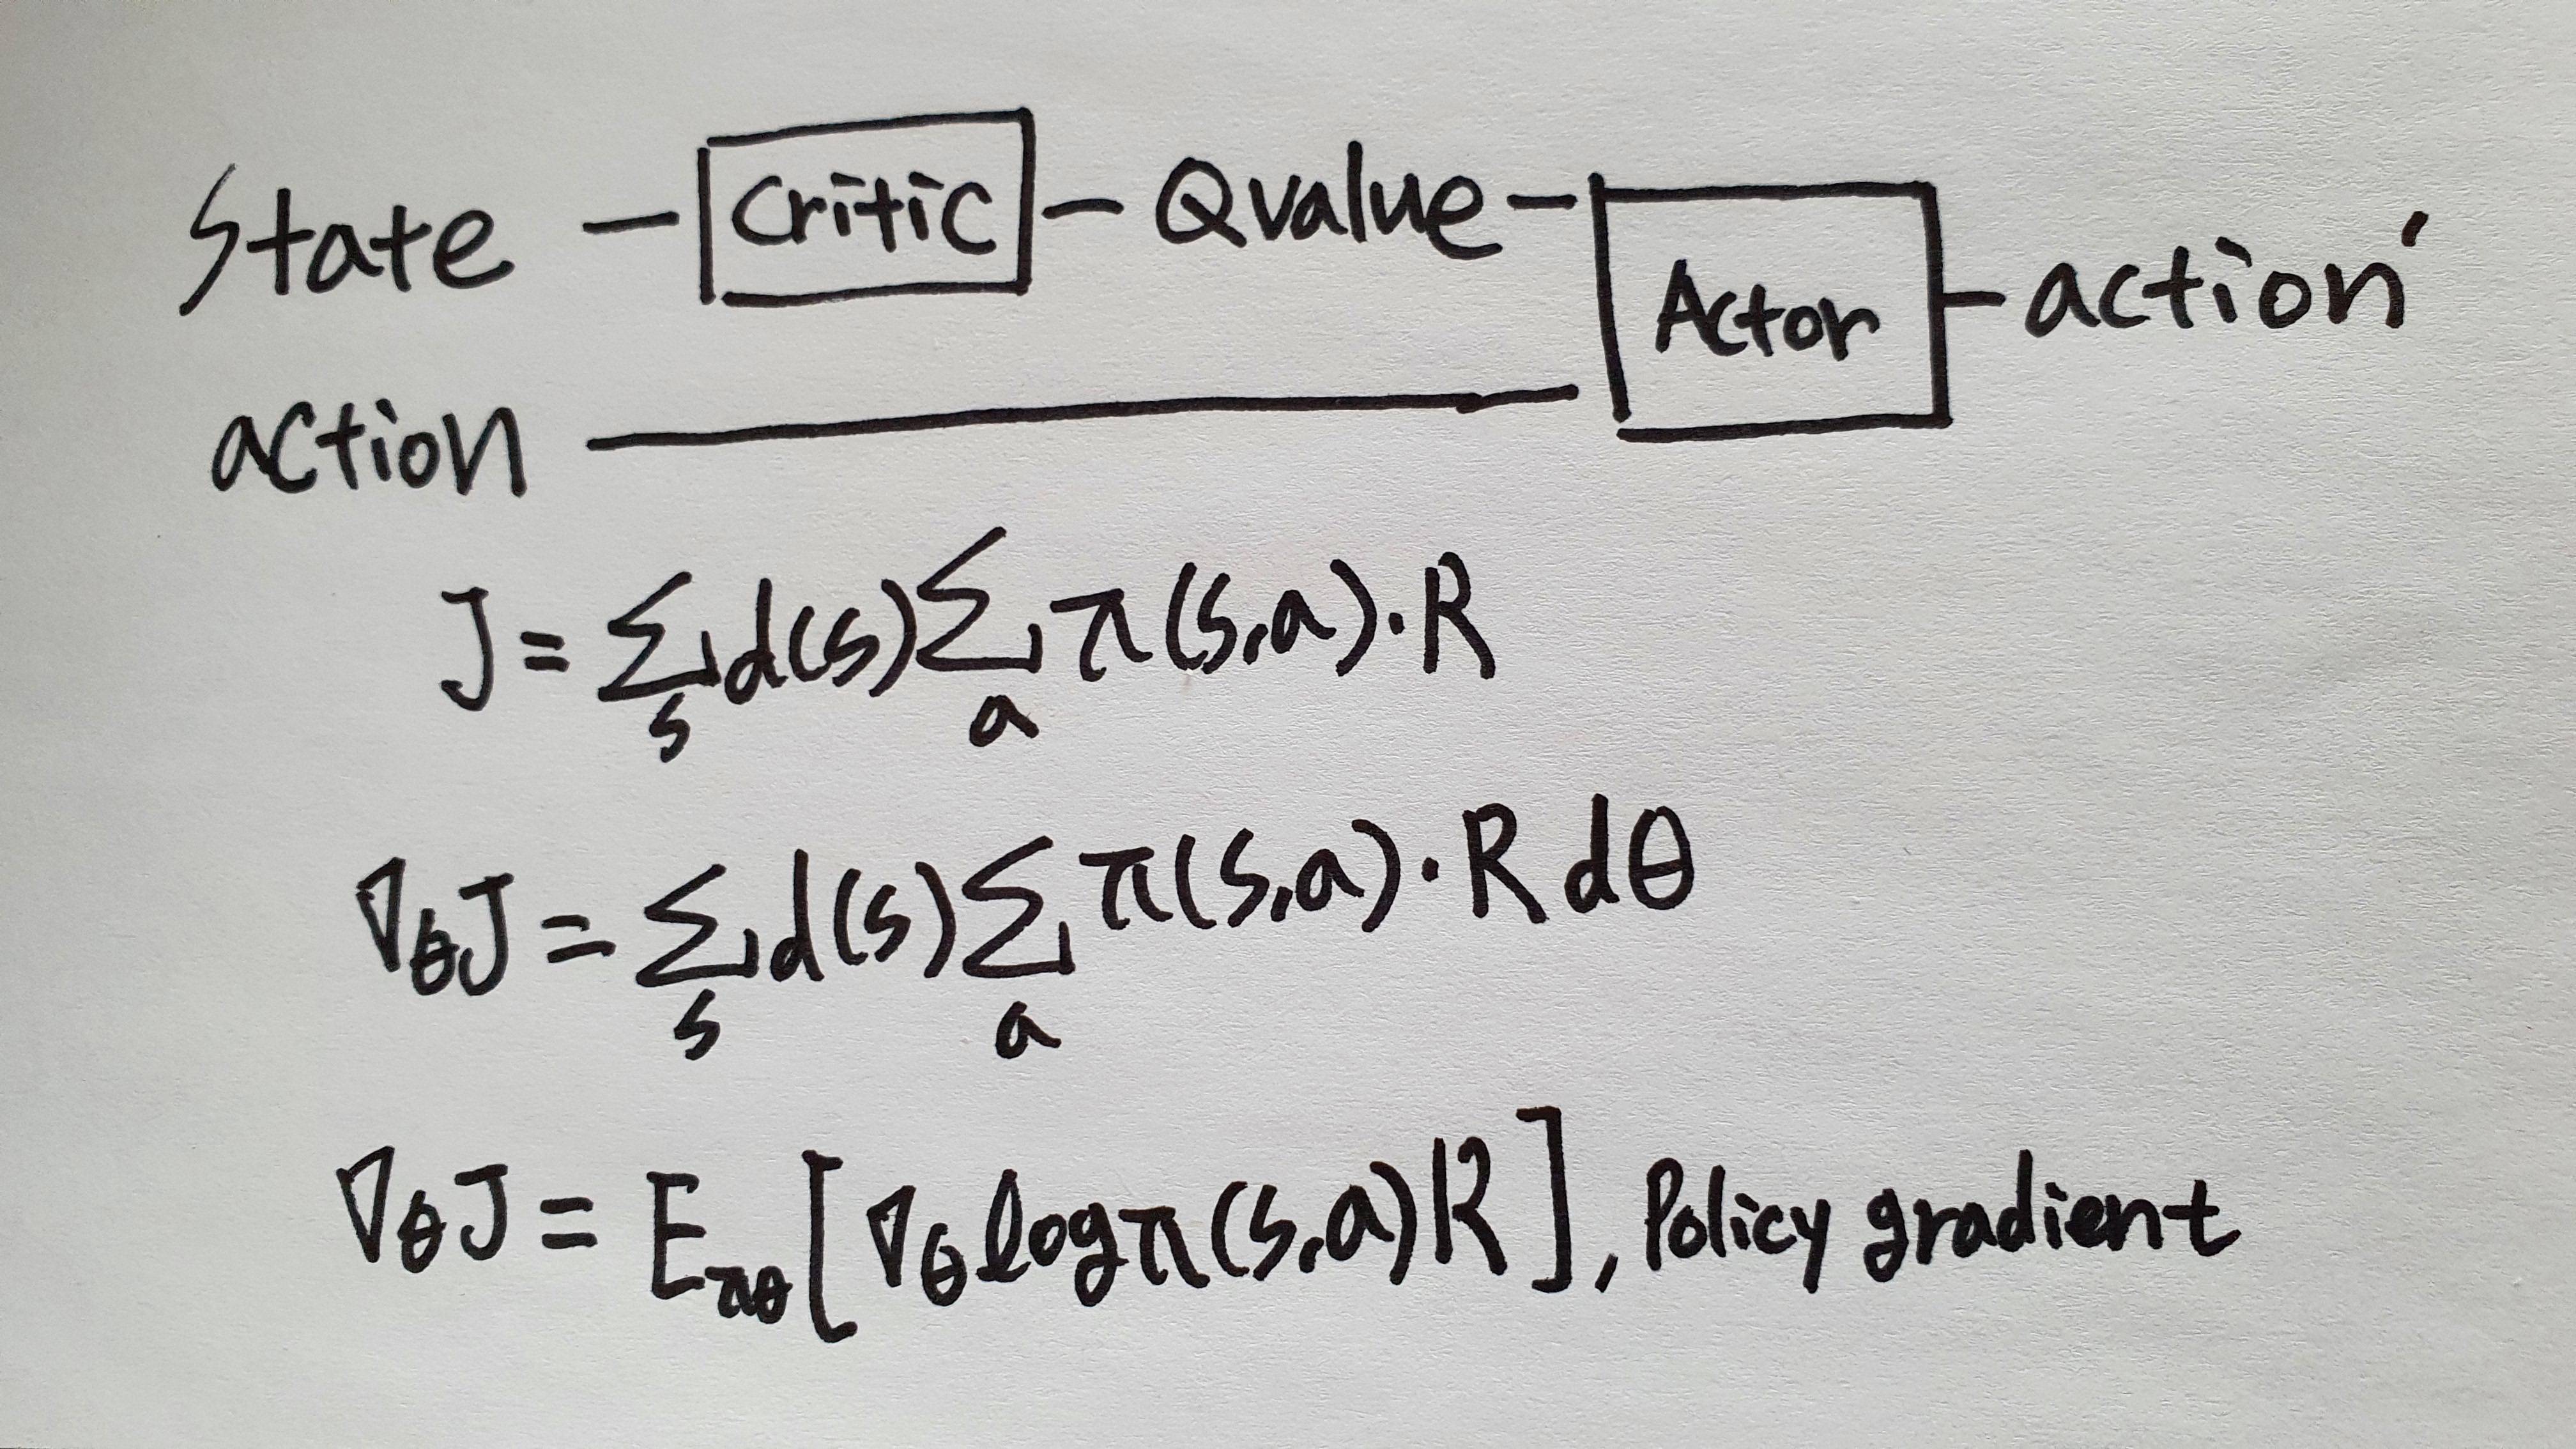 State - Critic - Qvalue - Actor - action'
action
J = ∑ d(s) ∑ π(s,a)·R
s a
∇θJ = ∑ d(s) ∑ π(s,a)·R dθ
s a
∇θJ = Eπθ[∇θ log π(s,a) R], Policy gradient